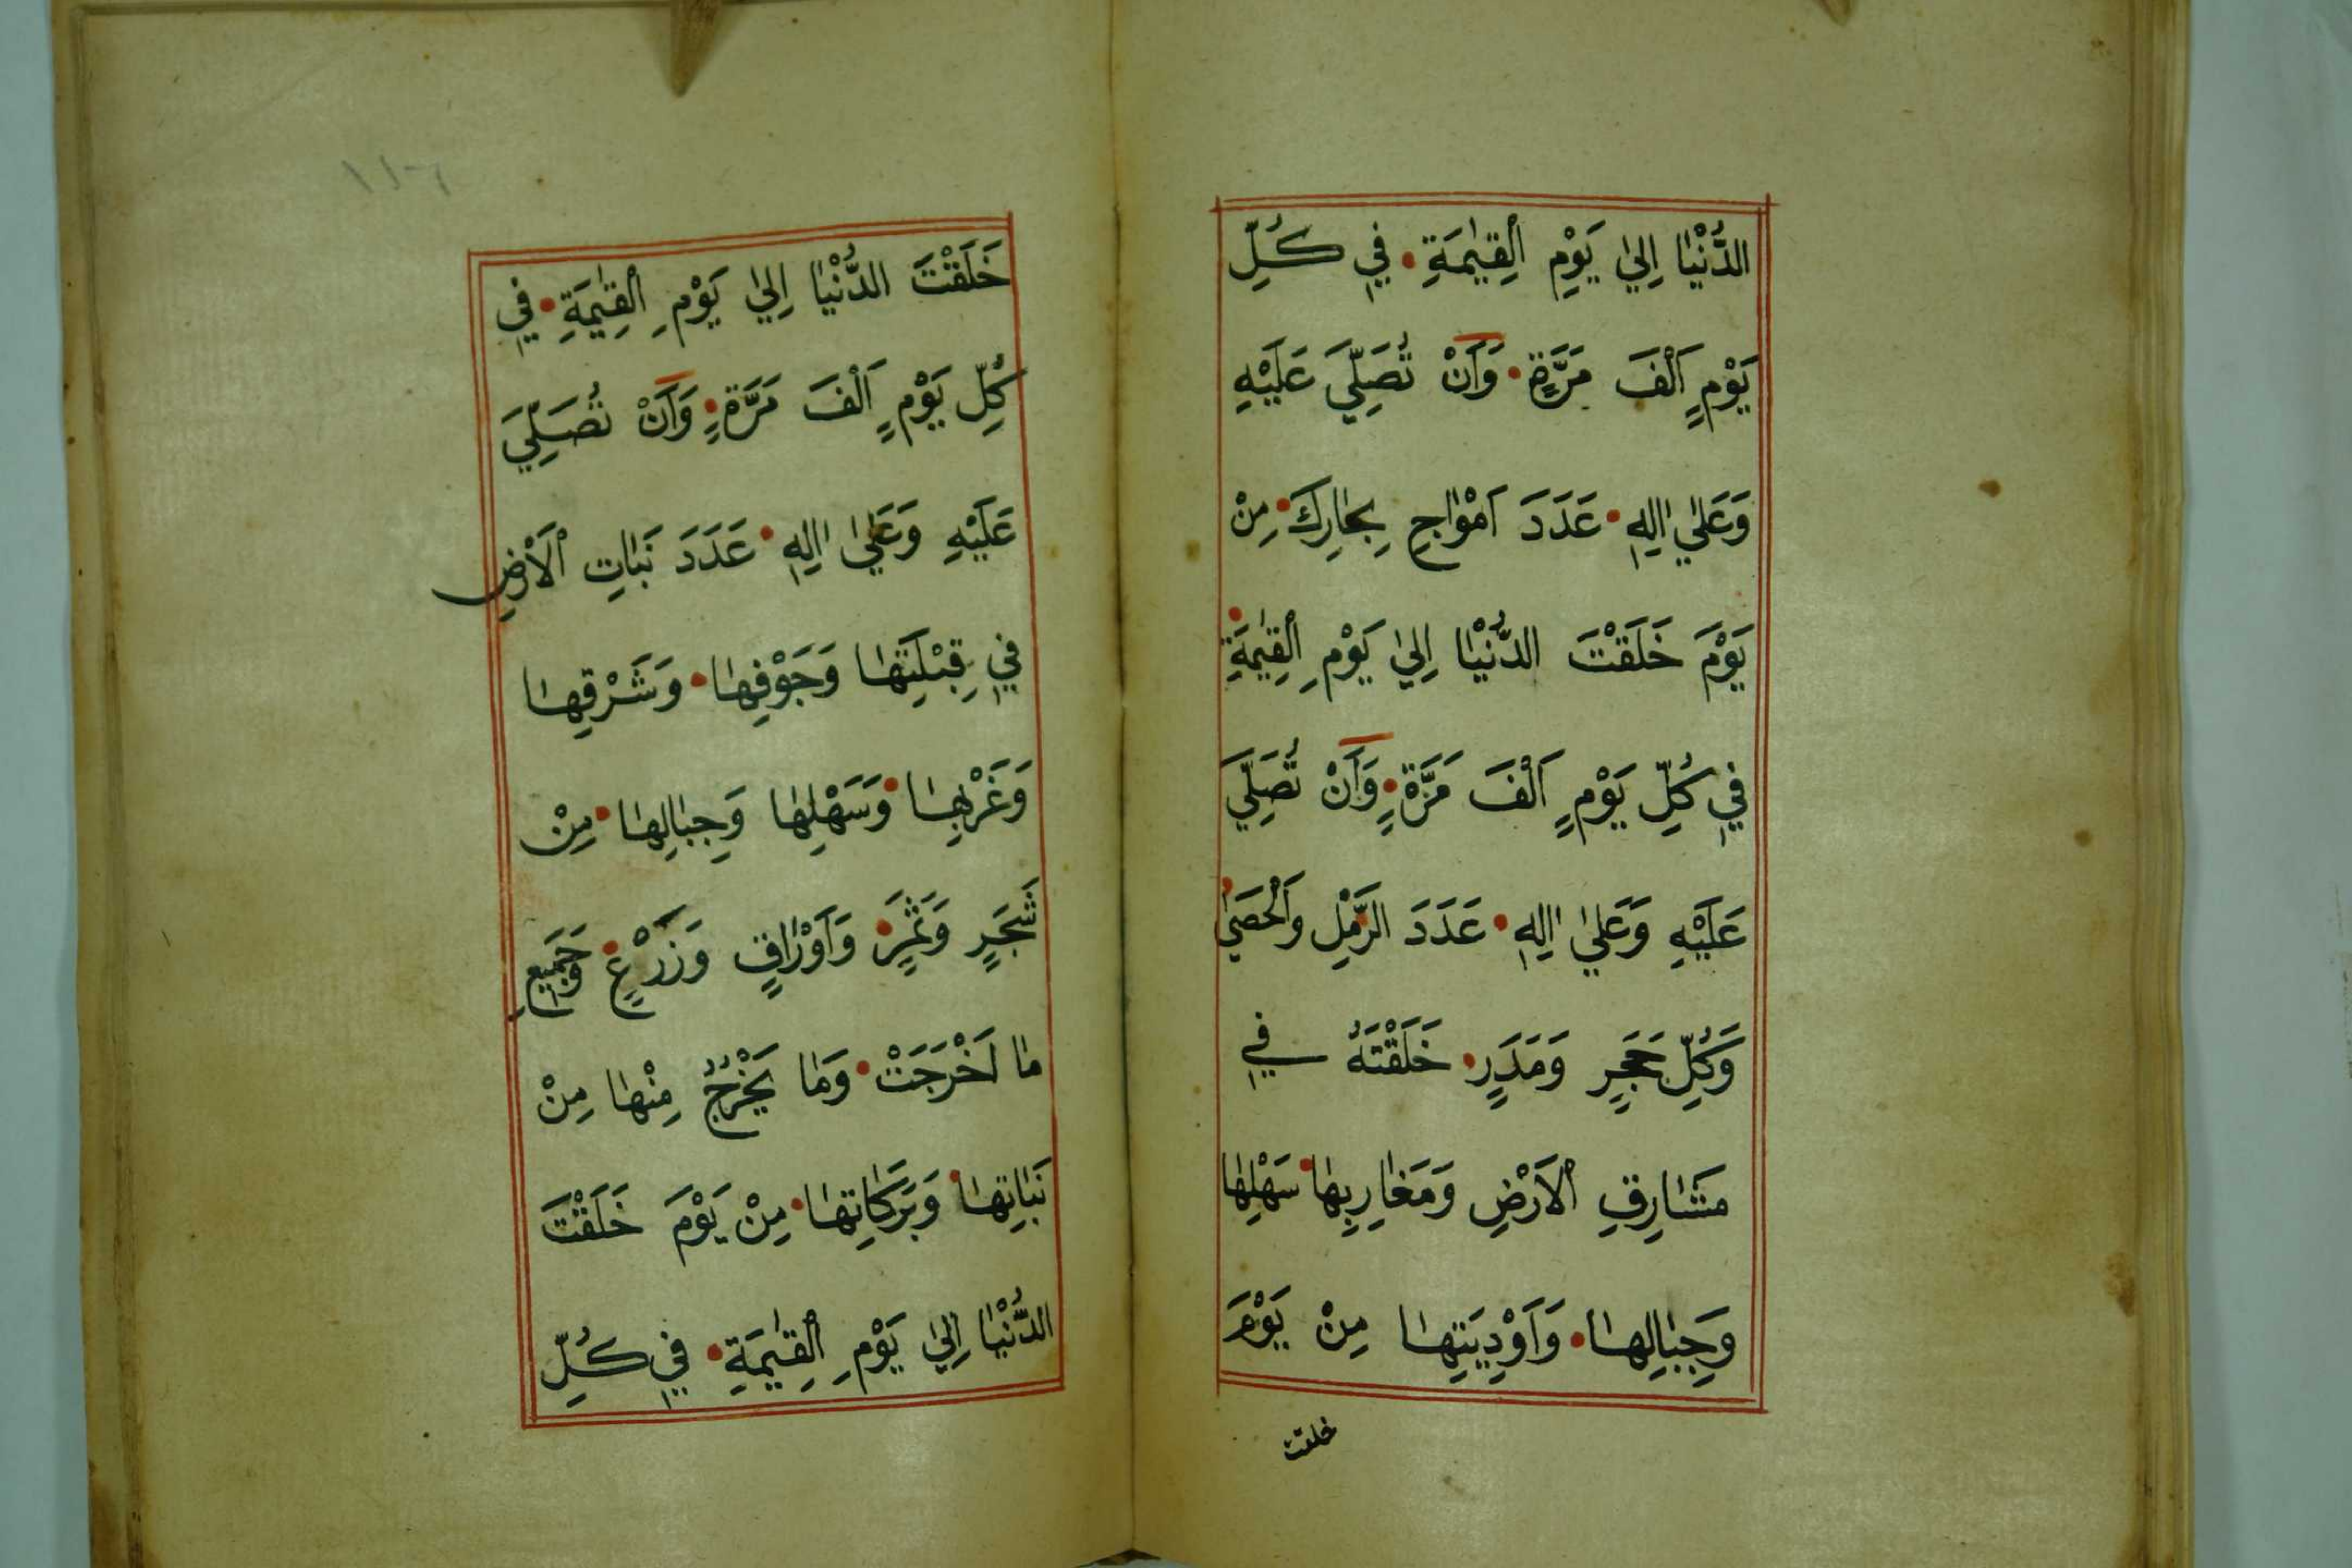 الدُّنْيٰا اِلىٰ يَوْمِ الْقِيٰمَةِ • فِي كُلِّ
يَوْمٍ اَلْفَ مَرَّةٍ • وَاَنْ تُصَلِّيَ عَلَيْهِ
وَعَلىٰ اٰلِهِ • عَدَدَ اَمْوٰاجِ بِحٰارِكَ • مِنْ
يَوْمَ خَلَقْتَ الدُّنْيٰا اِلىٰ يَوْمِ الْقِيٰمَةِ •
فِي كُلِّ يَوْمٍ اَلْفَ مَرَّةٍ • وَاَنْ تُصَلِّيَ
عَلَيْهِ وَعَلىٰ اٰلِهِ • عَدَدَ الرَّمْلِ وَالْحَصىٰ •
وَكُلِّ حَجَرٍ وَمَدَرٍ • خَلَقْتَهُ فِي
مَشٰارِقِ الْاَرْضِ وَمَغٰارِبِهٰا • سَهْلِهٰا
وَجِبٰالِهٰا • وَاَوْدِيَتِهٰا مِنْ يَوْمَ
خلقت
خَلَقْتَ الدُّنْيٰا اِلىٰ يَوْمِ الْقِيٰمَةِ • فِي
كُلِّ يَوْمٍ اَلْفَ مَرَّةٍ • وَاَنْ تُصَلِّيَ
عَلَيْهِ وَعَلىٰ اٰلِهِ • عَدَدَ نَبٰاتِ الْاَرْضِ
فِي قِبْلَتِهٰا وَجَوْفِهٰا • وَشَرْقِهٰا
وَغَرْبِهٰا • وَسَهْلِهٰا وَجِبٰالِهٰا • مِنْ
شَجَرٍ وَثَمَرٍ • وَاَوْرٰاقٍ وَزَرْعٍ • وَجَمِيعِ
مٰا اَخْرَجَتْ • وَمٰا يَخْرُجُ مِنْهٰا مِنْ
نَبٰاتِهٰا • وَبَرَكٰاتِهٰا • مِنْ يَوْمَ خَلَقْتَ
الدُّنْيٰا اِلىٰ يَوْمِ الْقِيٰمَةِ • فِي كُلِّ